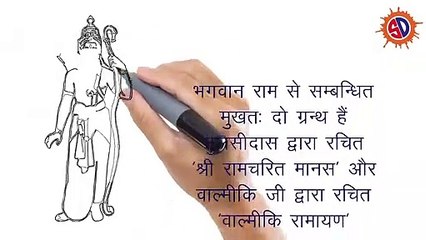 SD
भगवान राम से सम्बन्धित
मुखतः दो ग्रन्थ हैं
द्वारा रचित
'श्री रामचरित मानस' और
वाल्मीकि जी द्वारा रचित
'वाल्मीकि रामायण'